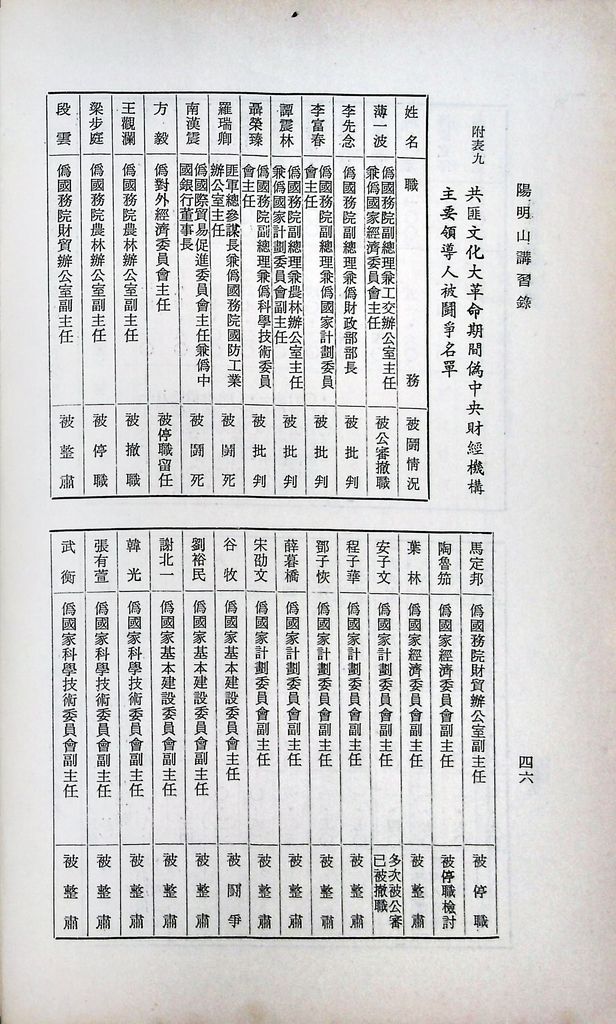 陽明山講習錄
四六
附表九
共匪文化大革命期間僞中央財經機構
主要領導人被鬪爭名單
姓名 職務 被鬪情況
薄一波 僞國務院副總理兼工交辦公室主任兼僞國家經濟委員會主任 被公審撤職
李先念 僞國務院副總理兼僞財政部部長 被批判
李富春 僞國務院副總理兼僞國家計劃委員會主任 被批判
譚震林 僞國務院副總理兼農林辦公室主任兼僞國家計劃委員會副主任 被批判
聶榮臻 僞國務院副總理兼僞科學技術委員會主任 被批判
羅瑞卿 匪軍總參謀長兼僞國務院國防工業辦公室主任 被鬪死
南漢宸 僞國際貿易促進委員會主任兼僞中國銀行董事長 被鬪死
方毅 僞對外經濟委員會主任 被停職留任
王觀瀾 僞國務院農林辦公室副主任 被撤職
梁步庭 僞國務院農林辦公室副主任 被停職
段雲 僞國務院財貿辦公室副主任 被整肅
馬定邦 僞國務院財貿辦公室副主任 被停職
陶魯笳 僞國家經濟委員會副主任 被停職檢討
葉林 僞國家經濟委員會副主任 被整肅
安子文 僞國家計劃委員會副主任 多次被公審已被撤職
程子華 僞國家計劃委員會副主任 被整肅
鄧子恢 僞國家計劃委員會副主任 被整肅
薛暮橋 僞國家計劃委員會副主任 被整肅
宋劭文 僞國家計劃委員會副主任 被整肅
谷牧 僞國家基本建設委員會主任 被鬪爭
劉裕民 僞國家基本建設委員會副主任 被整肅
謝北一 僞國家基本建設委員會副主任 被整肅
韓光 僞國家科學技術委員會副主任 被整肅
張有萱 僞國家科學技術委員會副主任 被整肅
武衡 僞國家科學技術委員會副主任 被整肅